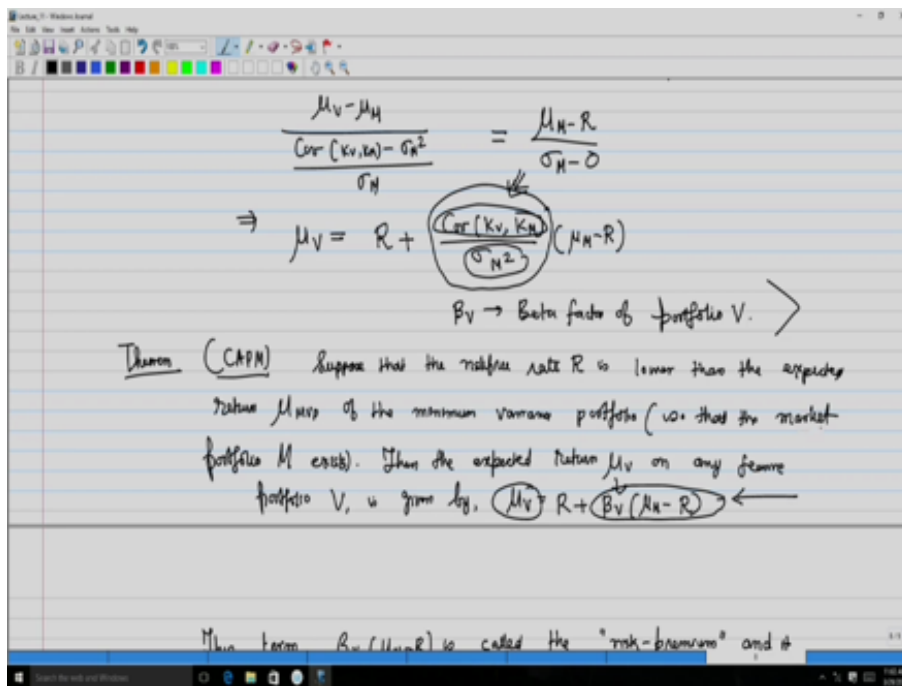 Lecture_11 - Windows Journal
File Edit View Insert Actions Tools Help
B I
μ_V - μ_M / ((Cov (K_V, K_M) - σ_M²) / σ_M) = (μ_M - R) / (σ_M - 0)
⇒ μ_V = R + (Cov (K_V, K_M) / σ_M²) (μ_M - R)
β_V → Beta factor of portfolio V.
Theorem (CAPM) Suppose that the riskfree rate R is lower than the expected
return μ_MVP of the minimum variance portfolio (so that the market
portfolio M exists). Then the expected return μ_V on any feasible
portfolio V, is given by, μ_V = R + β_V (μ_M - R) ←
This term β_V (μ_M - R) is called the "risk-premium" and it
Search the web and Windows